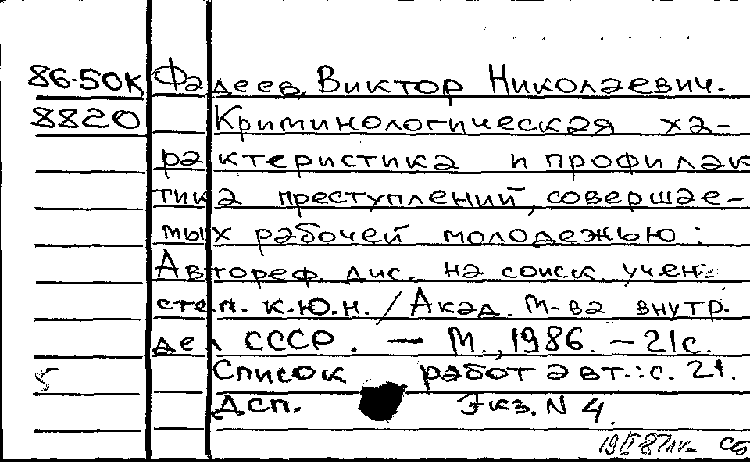 86-50К Фадеев, Виктор Николаевич.
8820 Криминологическая ха-
рактеристика и профилак
тика преступлений, совершае-
мых рабочей молодежью :
Автореф. дис. на соиск. учен.
степ. к.ю.н. / Акад. м-ва внутр.
дел СССР. — М., 1986. — 21 с.
Список работ авт.: с. 21.
Дсп. Экз. N 4.